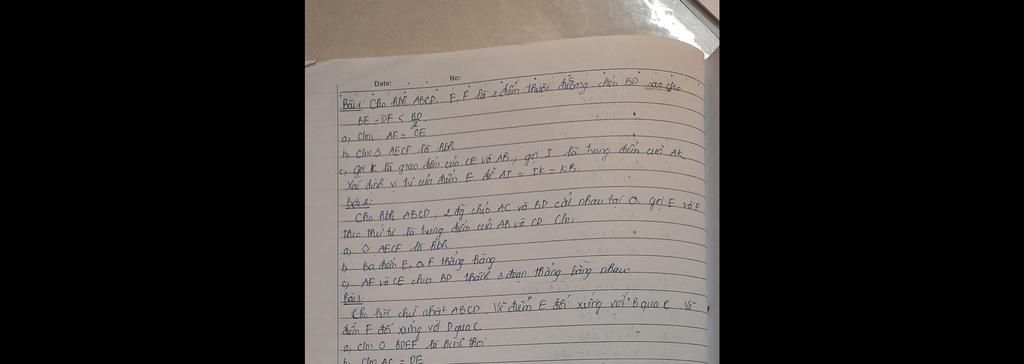 Date: No:
Bài 1: Cho hbh ABCD. E, F là 2 điểm thuộc đường chéo BD sao cho
BE = DF < BD/2
a, Clm AF = CE
b, Clm ◇ AECF là hbh
c, gọi K là giao điểm của CE và AB, gọi I là trung điểm của AK
Xác định vị trí của điểm E để AI = IK = KB
Bài 2:
Cho hbh ABCD, 2 đg chéo AC và BD cắt nhau tại O. gọi E và F
theo thứ tự là trung điểm của AB và CD Clm:
a, ◇ AECF là hbh
b, Ba điểm E, O, F thẳng hàng
c, AF và CE chia BD thành 3 đoạn thẳng bằng nhau
Bài 3:
Cho hình chữ nhật ABCD. Vẽ điểm E đối xứng với B qua C. Vẽ
điểm F đối xứng với D qua C.
a, clm ◇ BDEF là hình thoi
b, Clm AC = DE